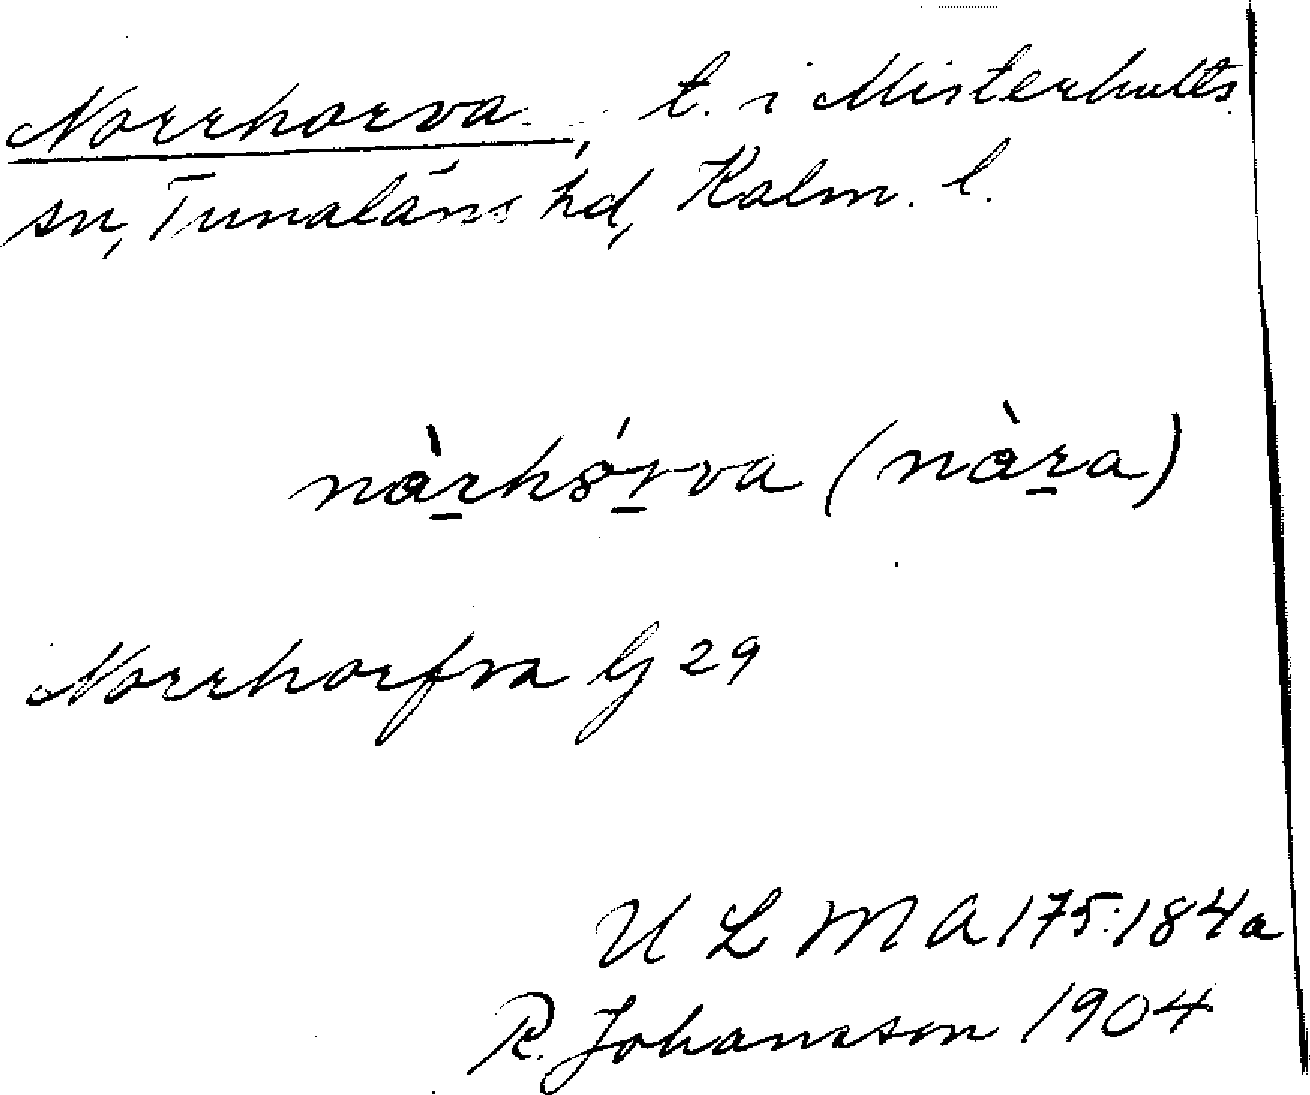 Norrhorva, t. i Misterhults
sn, Tunaläns hd, Kalm. l.
nàr̲hór̲va (nàr̲a)
Norrhorfva G 29
ULMA 175:184a
R. Johansson 1904